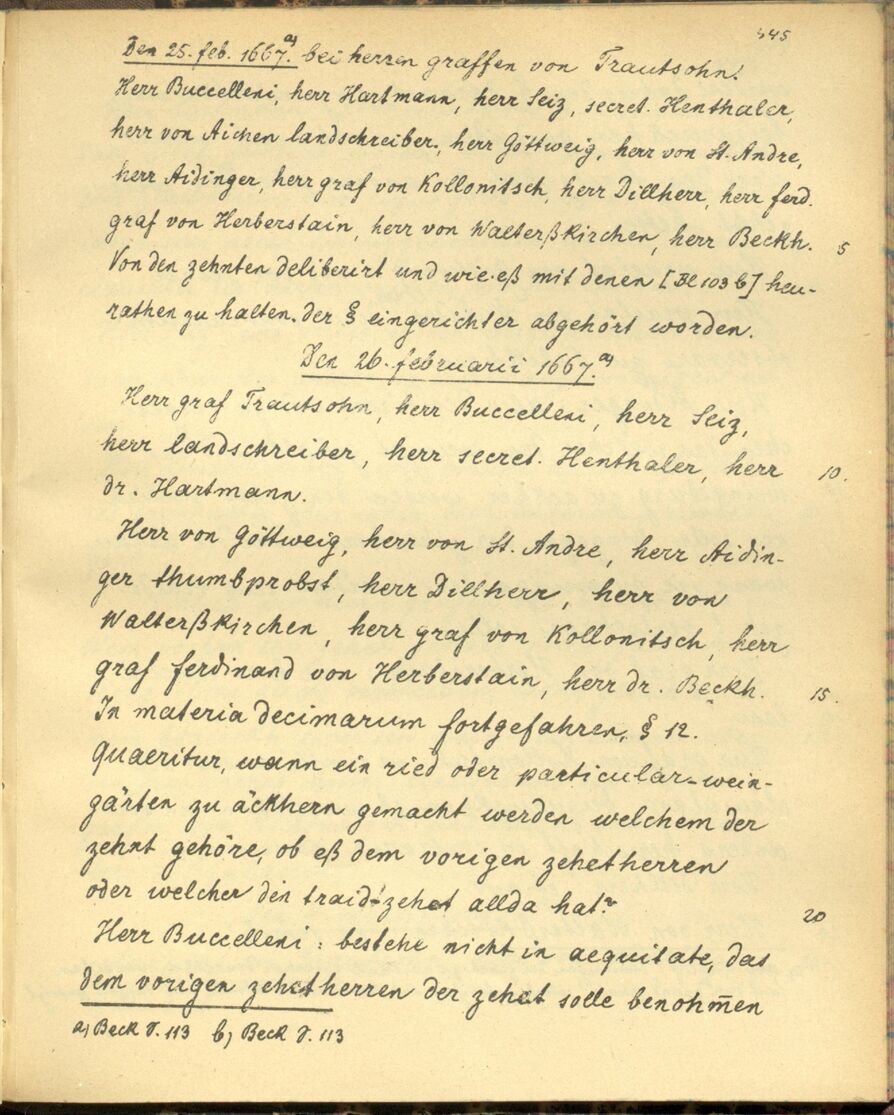 345
Den 25. feb. 1667.a) bei herren graffen von Trautsohn.
Herr Buccelleni, herr Hartmann, herr Seiz, secret. Henthaler,
herr von Aichen landschreiber, herr Göttweig, herr von St. Andre,
herr Aidinger, herr graf von Kollonitsch, herr Dillherr, herr ferd.
graf von Herberstain, herr von Walterßkirchen, herr Beckh. 5
Von den zehnten deliberirt und wie eß mit denen [Bl 103 b] heu-
rathen zu halten. der § eingerichter abgehört worden.
Den 26. februarii 1667.a)
Herr graf Trautsohn, herr Buccelleni, herr Seiz,
herr landschreiber, herr secret. Henthaler, herr 10.
dr. Hartmann.
Herr von Göttweig, herr von St. Andre, herr Aidin-
ger thumbprobst, herr Dillherr, herr von
Walterßkirchen, herr graf von Kollonitsch, herr
graf ferdinand von Herberstain, herr dr. Beckh. 15.
In materia decimarum fortgefahren, § 12.
Quaeritur, wann ein ried oder particular-wein-
gärten zu äckhern gemacht werden welchem der
zehnt gehöre, ob eß dem vorigen zehetherren
oder welcher den traid-zehet allda hat? 20
Herr Buccelleni: bestehe nicht in aequitate, das
dem vorigen zehetherren der zehet solle benohm̄en
a) Beck S. 113 b) Beck S. 113